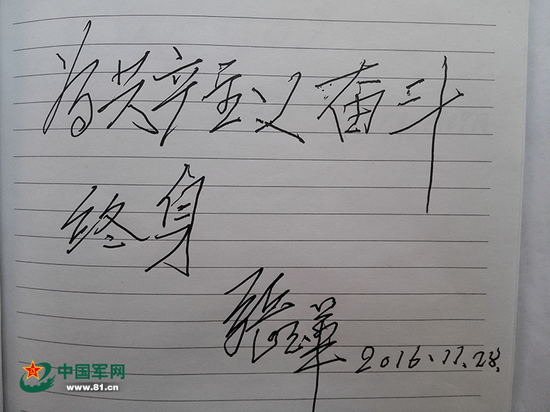 为共产主义奋斗
终身
张玉华 2016.11.28.
中国军网
www.81.cn